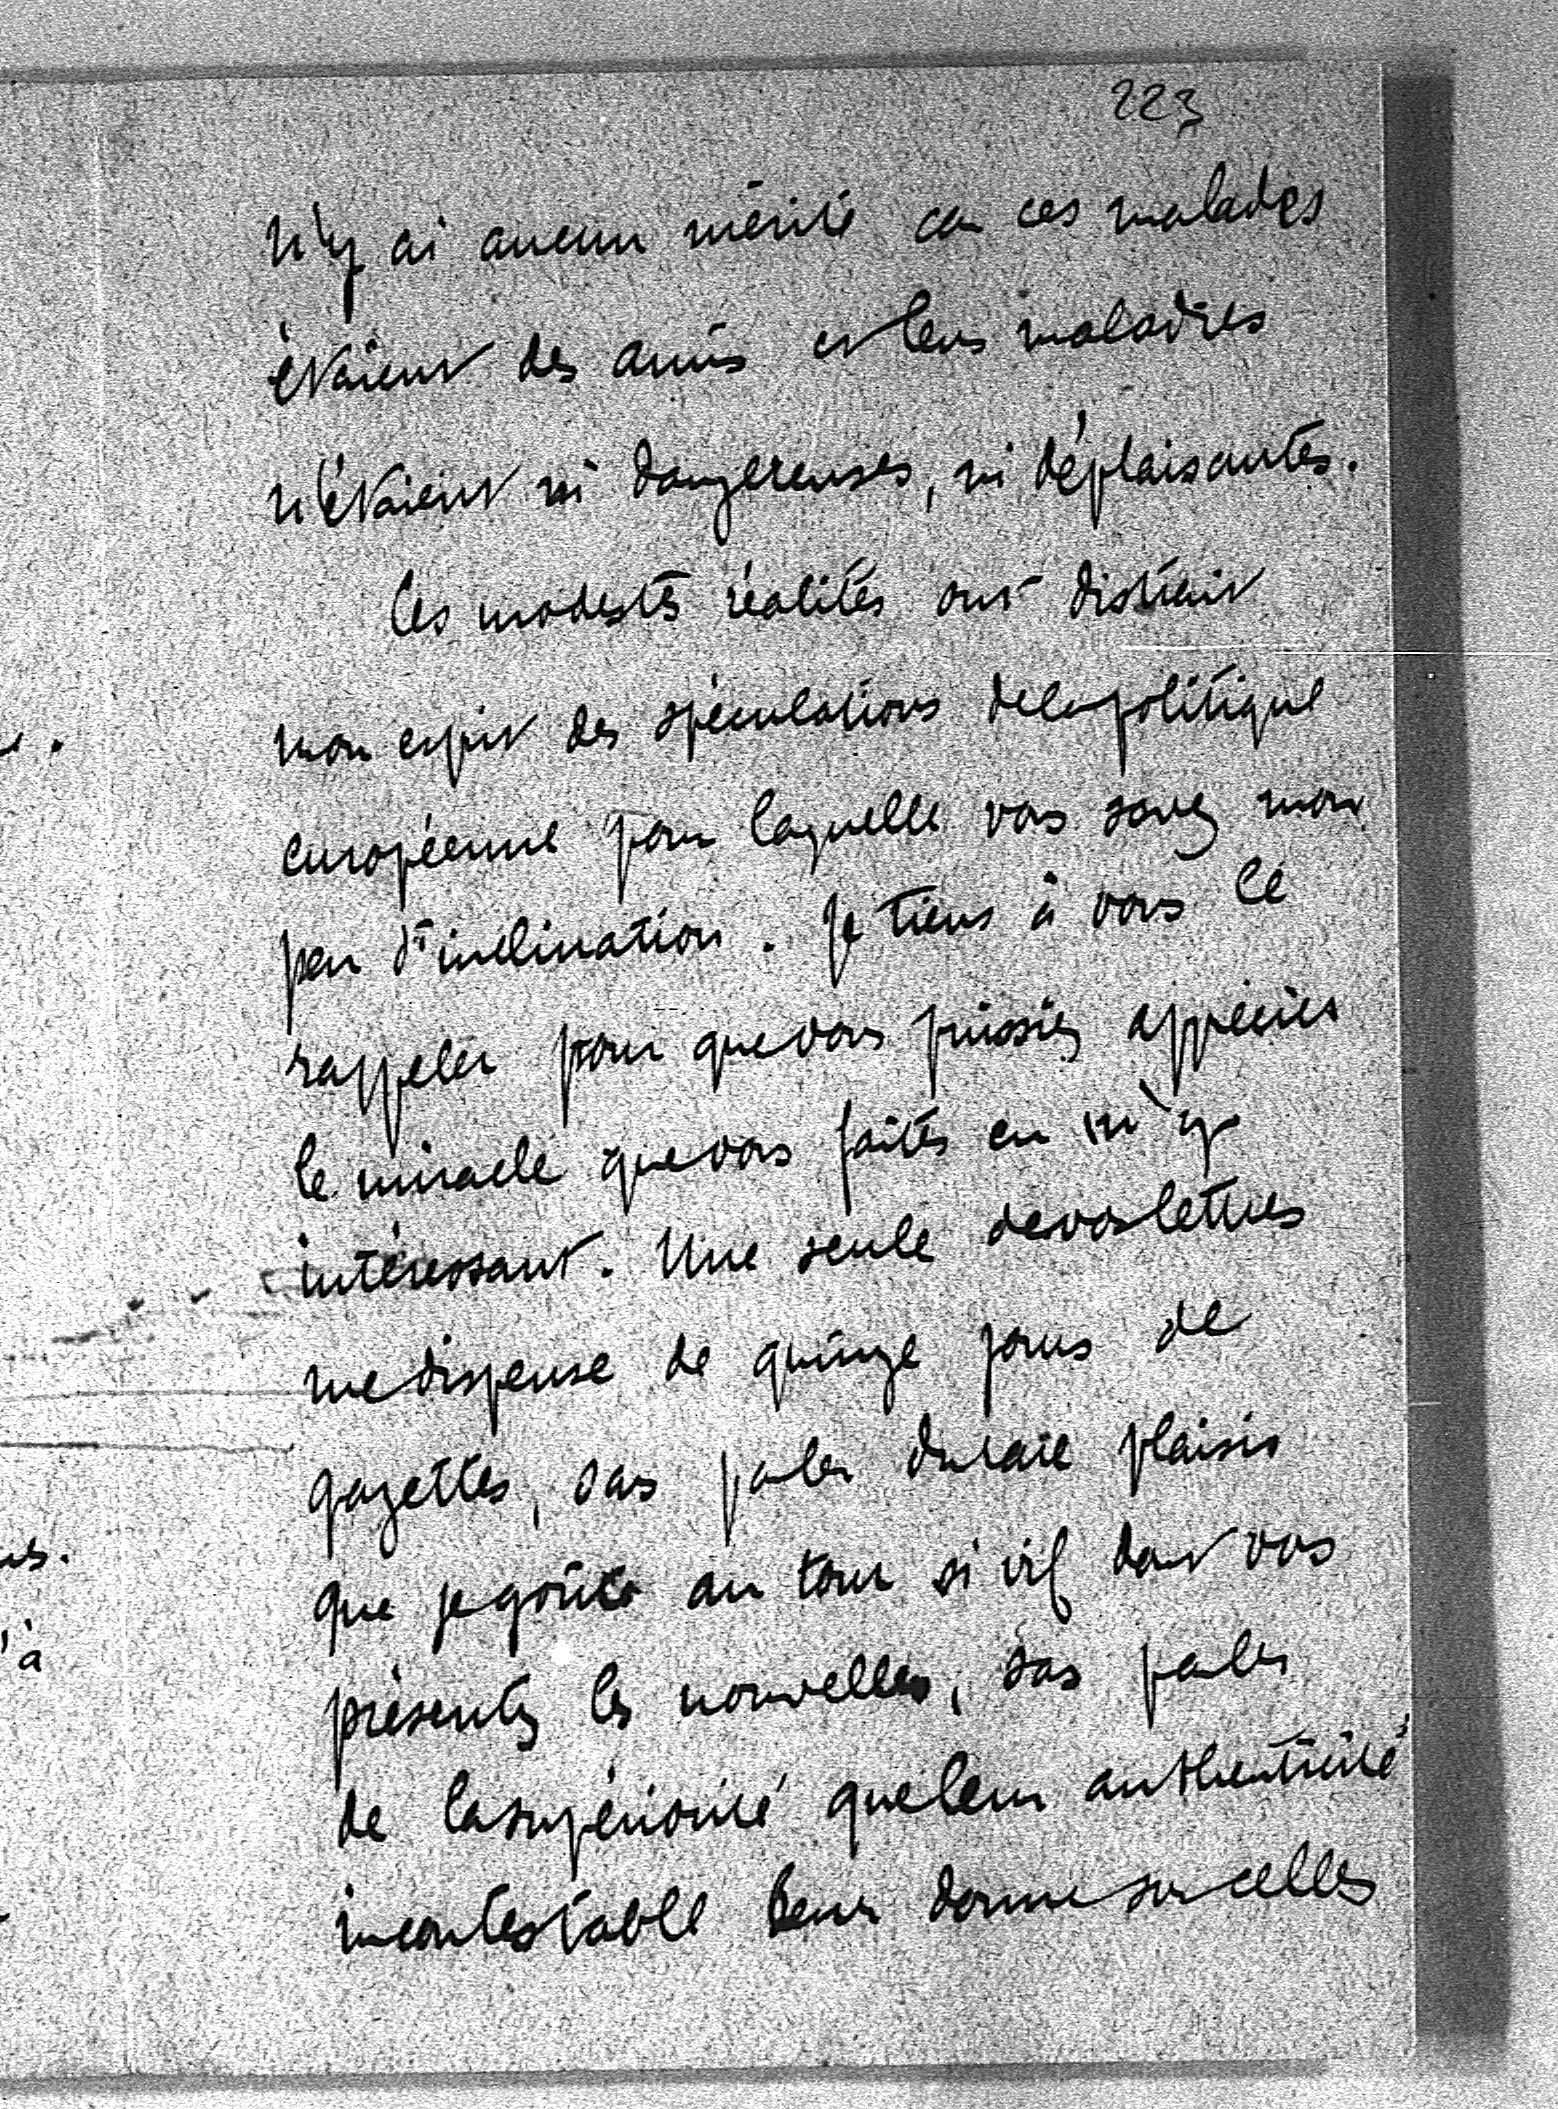 223
n'y ai aucun mérite car ces malades
étaient des amis et leurs maladies
n'étaient ni dangereuses, ni déplaisantes.
Ces modestes réalités ont distrait
mon esprit des spéculations de la politique
européenne pour laquelle vous savez mon
peu d'inclination. Je tiens à vous le
rappeler pour que vous puissiez apprécier
le miracle que vous faites en m'y
intéressant. Une seule de vos lettres
me dispense de quinze jours de
gazettes, sans parler du rare plaisir
que je goûte au tour si vif dont vous
présentez les nouvelles, sans parler
de la supériorité que leur authenticité
incontestable leur donne sur celles
us.
'à